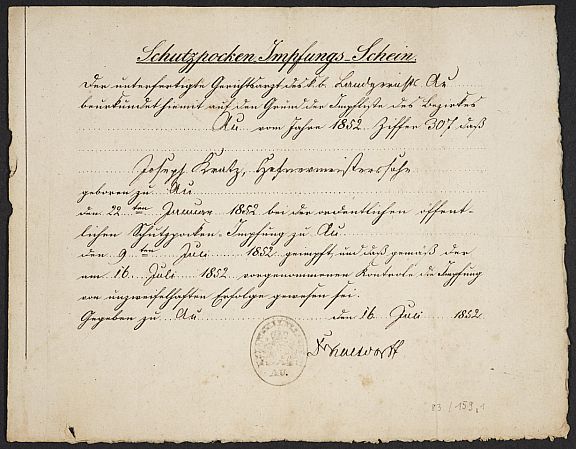 Schutzpocken-Impfungs-Schein.
Der unterfertigte Gerichtsarzt des k. b. Landgerichts Au
beurkundet hiemit auf den Grund der Impfliste des Bezirkes
Au vom Jahre 1852 Ziffer 307 daß
Joseph Kratz,
geboren zu Au
den 22ten Januar 1852 bei der ordentlichen öffent-
lichen Schutzpocken-Impfung zu Au
den 9ten Juli 1852 geimpft, und daß gemäß der
am 16. Juli 1852 vorgenommenen Kontrole die Impfung
von unzweifelhaftem Erfolge gewesen sei.
Gegeben zu Au den 16. Juli 1852
AU.
83/159,1